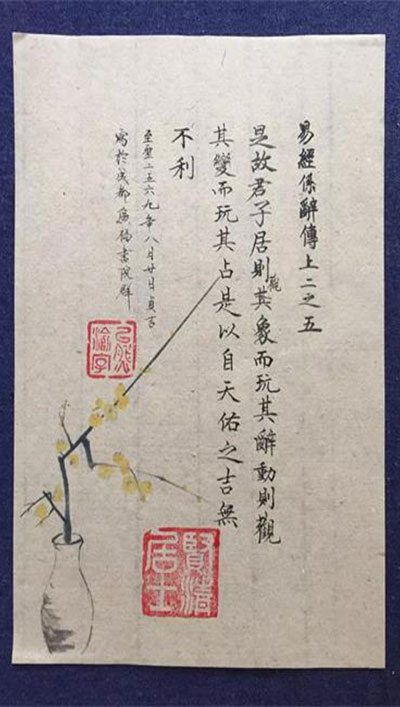 易經係辭傳上二之五
是故君子居則觀其象而玩其辭動則觀
其變而玩其占是以自天佑之吉無
不利
至聖二五六九年八月廿日
寫於成都書院
居士